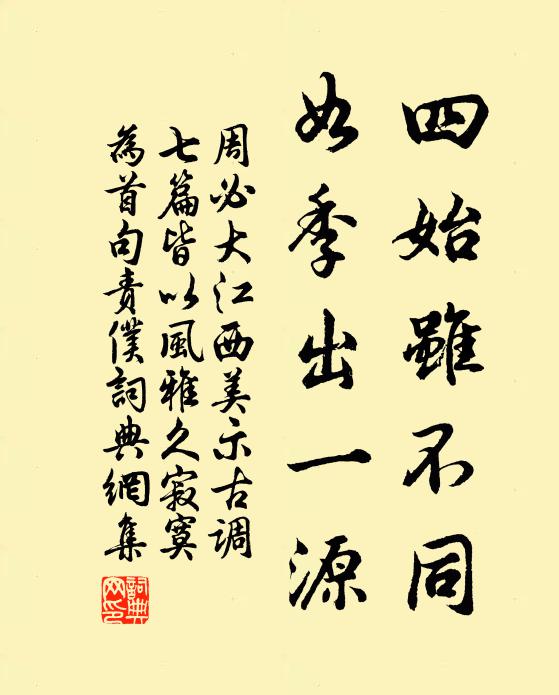 四始雖不同
如季出一源
周必大江西美示古调
七篇皆以風雅久寂寞
為首句責僕詞典網集
詞典网印